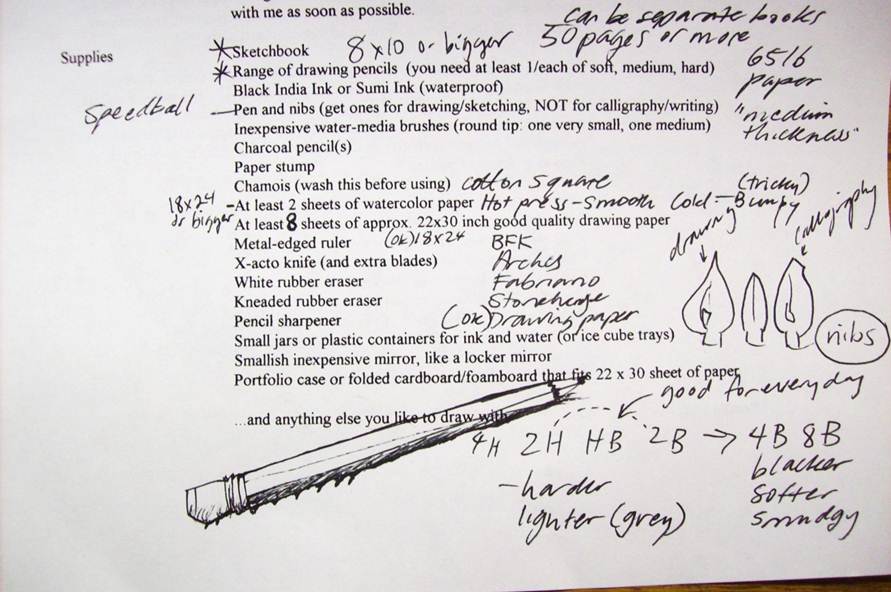 with me as soon as possible.
can be separate books
Supplies
*Sketchbook 8x10 or bigger 50 pages or more
*Range of drawing pencils (you need at least 1/each of soft, medium, hard) 65 lb
Black India Ink or Sumi Ink (waterproof) paper
Speedball -Pen and nibs (get ones for drawing/sketching, NOT for calligraphy/writing) "medium
Inexpensive water-media brushes (round tip: one very small, one medium) thickness"
Charcoal pencil(s)
Paper stump
Chamois (wash this before using) cotton square (tricky)
18x24 -At least 2 sheets of watercolor paper Hot press-smooth Cold-Bumpy
or bigger At least 8 sheets of approx. 22x30 inch good quality drawing paper drawing calligraphy
Metal-edged ruler (ok) 18x24 BFK
X-acto knife (and extra blades) Arches
White rubber eraser Fabriano
Kneaded rubber eraser Stonehenge
Pencil sharpener (ok) Drawing paper
Small jars or plastic containers for ink and water (or ice cube trays) nibs
Smallish inexpensive mirror, like a locker mirror
Portfolio case or folded cardboard/foamboard that fits 22 x 30 sheet of paper
good for everyday
...and anything else you like to draw with
4H 2H HB 2B → 4B 8B
-harder blacker
lighter (grey) softer
smudgy